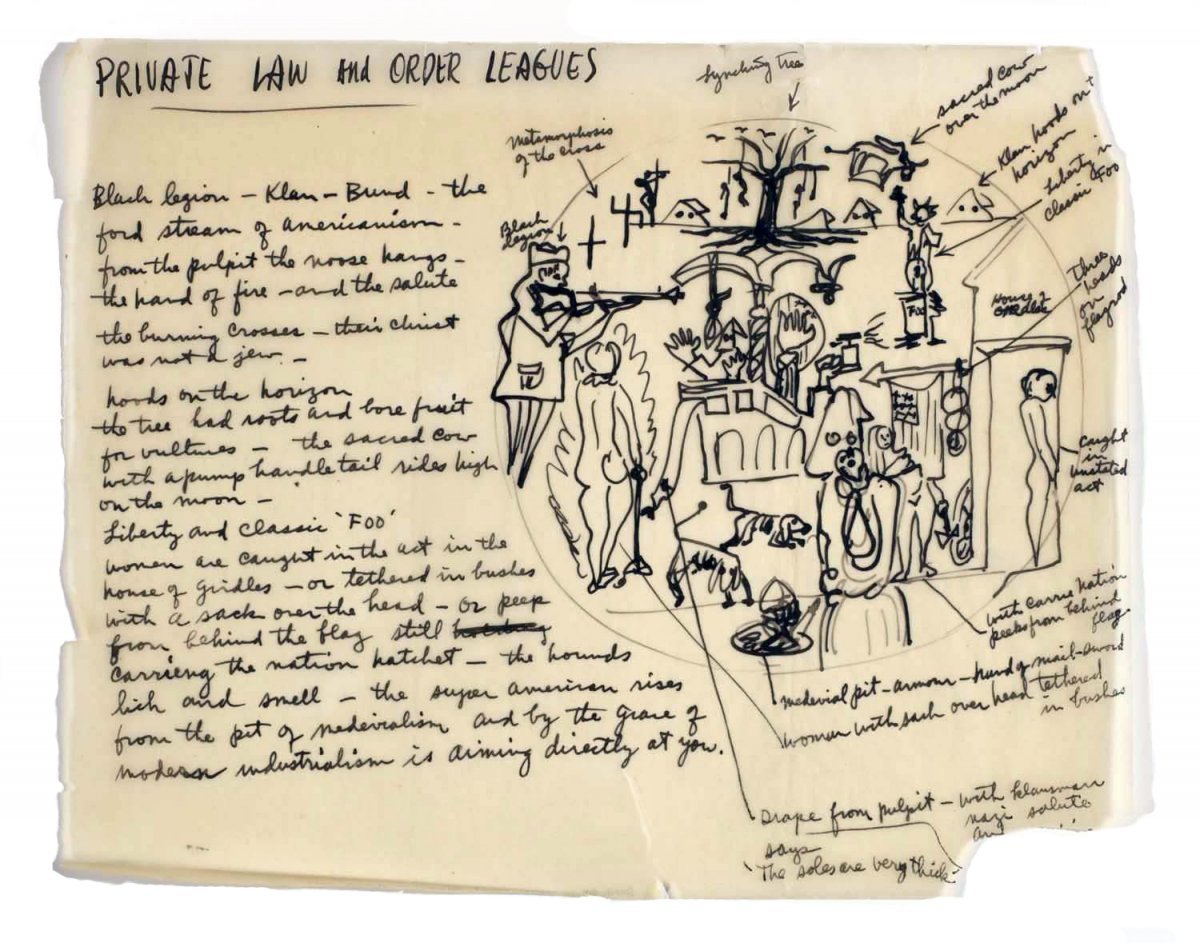 PRIVATE LAW and ORDER LEAGUES
Black legion – Klan – Bund – the
ford stream of americanism –
from the pulpit the noose hangs –
the hand of fire – and the salute
the burning crosses – their christ
was not a jew –
hoods on the horizon
the tree had roots and bore fruit
for vultures – the sacred cow
with a pump handle tail rides high
on the moon –
Liberty and classic 'FOO'
women are caught in the act in the
house of girdles – or tethered in bushes
with a sack over the head – or peep
from behind the flag still
carrieng the nation hatchet – the hounds
lick and smell – the super american rises
from the pit of medeivalism and by the grace of
modern industrialism is aiming directly at you.
Lynching Tree
metamorphosis
of the cross
Black
legion
sacred cow
over the moon
Klan hoods on
horizon
Liberty in
classic FOO
three
heads
on
flagrod
FOO
HOUSE of
caught
in
unstated
act
with carrie nation
peeks from behind
flag
medevial pit – armour – hand of mail – sword
woman with sack over head tethered
in bushes
Drape from pulpit – with klansman
nazi salute
and
says
"The soles are very thick"